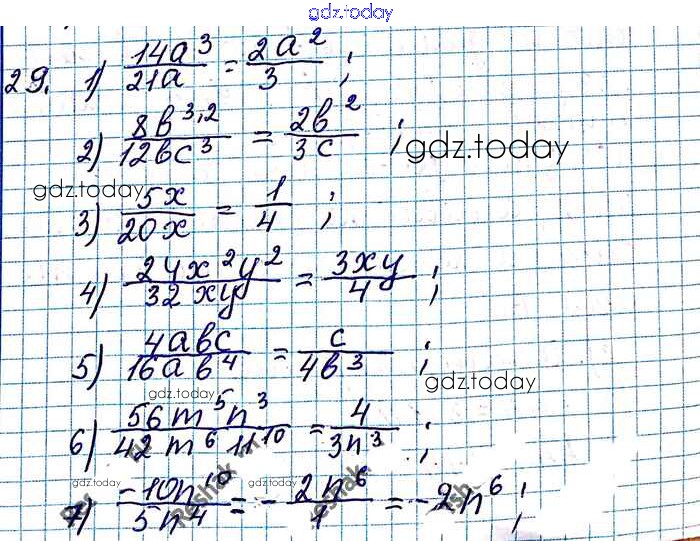 gdz.today
29. 1) 14a³/21a = 2a²/3 ;
2) 8b³,²/12bc³ = 2b²/3c ;
gdz.today
gdz.today
3) 5x/20x = 1/4 ;
4) 24x²y²/32xy = 3xy/4 ;
5) 4abc/16ab⁴ = c/4b³ ;
gdz.today
6) 56m⁵n³/42m⁶n¹⁰ = 4/3n³ ;
gdz.today gdz.today
7) -10n¹⁰/5n⁴ = - 2n⁶/1 = -2n⁶ ;